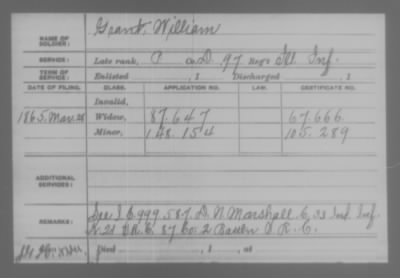 NAME OF SOLDIER: Grant, William
SERVICE: Late rank, P Co. D. 97 Reg't Ill Inf.
TERM OF SERVICE: Enlisted , 1 Discharged , 1
DATE OF FILING. CLASS. APPLICATION NO. LAW. CERTIFICATE NO.
Invalid,
1865. Mar. 28 Widow, 87.647 67.666
Minor, 148.154 105.289
ADDITIONAL SERVICES:
REMARKS: See I.C. 999.587. D. N. Marshall. C. 33 Ind. Inf.
K. 21 V.R.C. 87 Co. 2 V.R.C.
Died , 1 , at